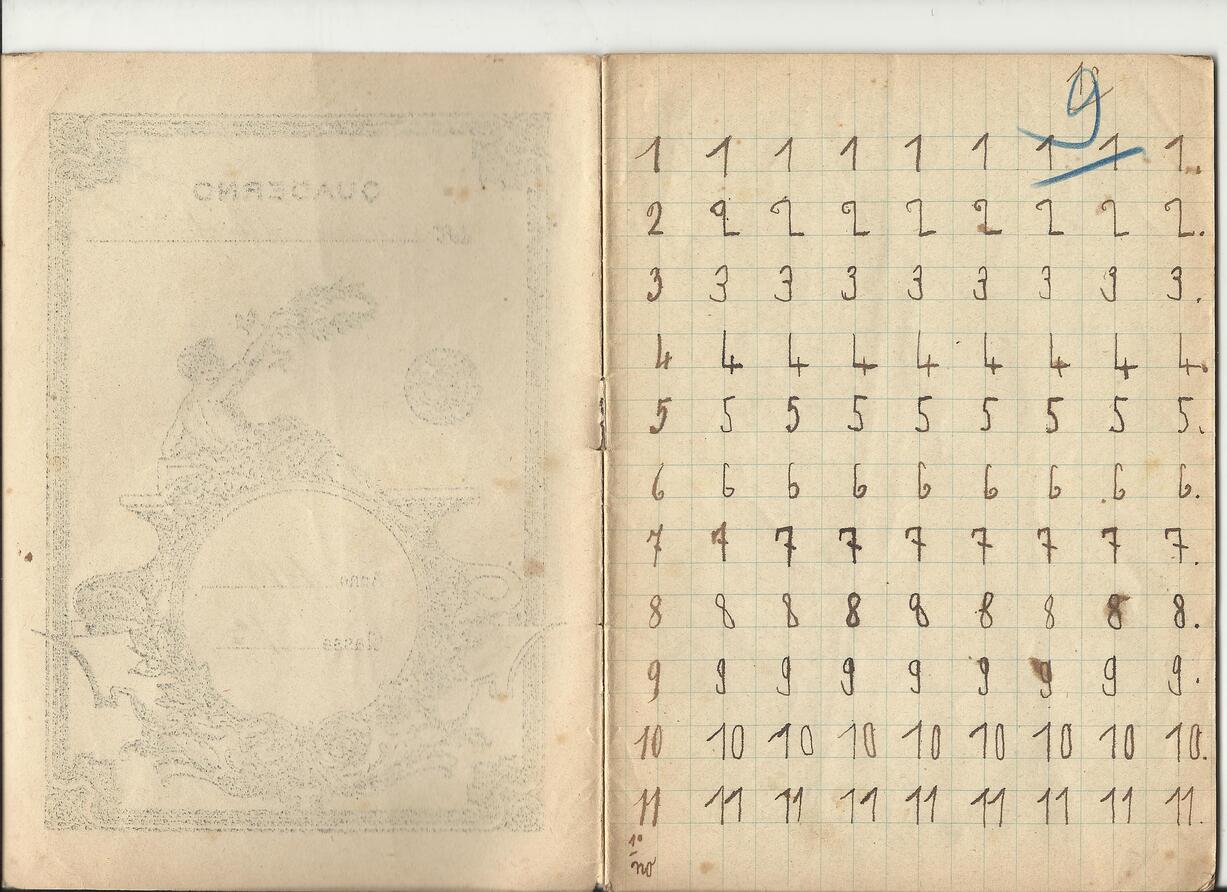 QUADERNO
di
Anno
Classe
9
1 1 1 1 1 1 1 1 1.
2 2 2 2 2 2 2 2 2.
3 3 3 3 3 3 3 3 3.
4 4 4 4 4 4 4 4 4.
5 5 5 5 5 5 5 5 5.
6 6 6 6 6 6 6 6 6.
7 7 7 7 7 7 7 7 7.
8 8 8 8 8 8 8 8 8.
9 9 9 9 9 9 9 9 9.
10 10 10 10 10 10 10 10 10.
11 11 11 11 11 11 11 11 11.
1°
no